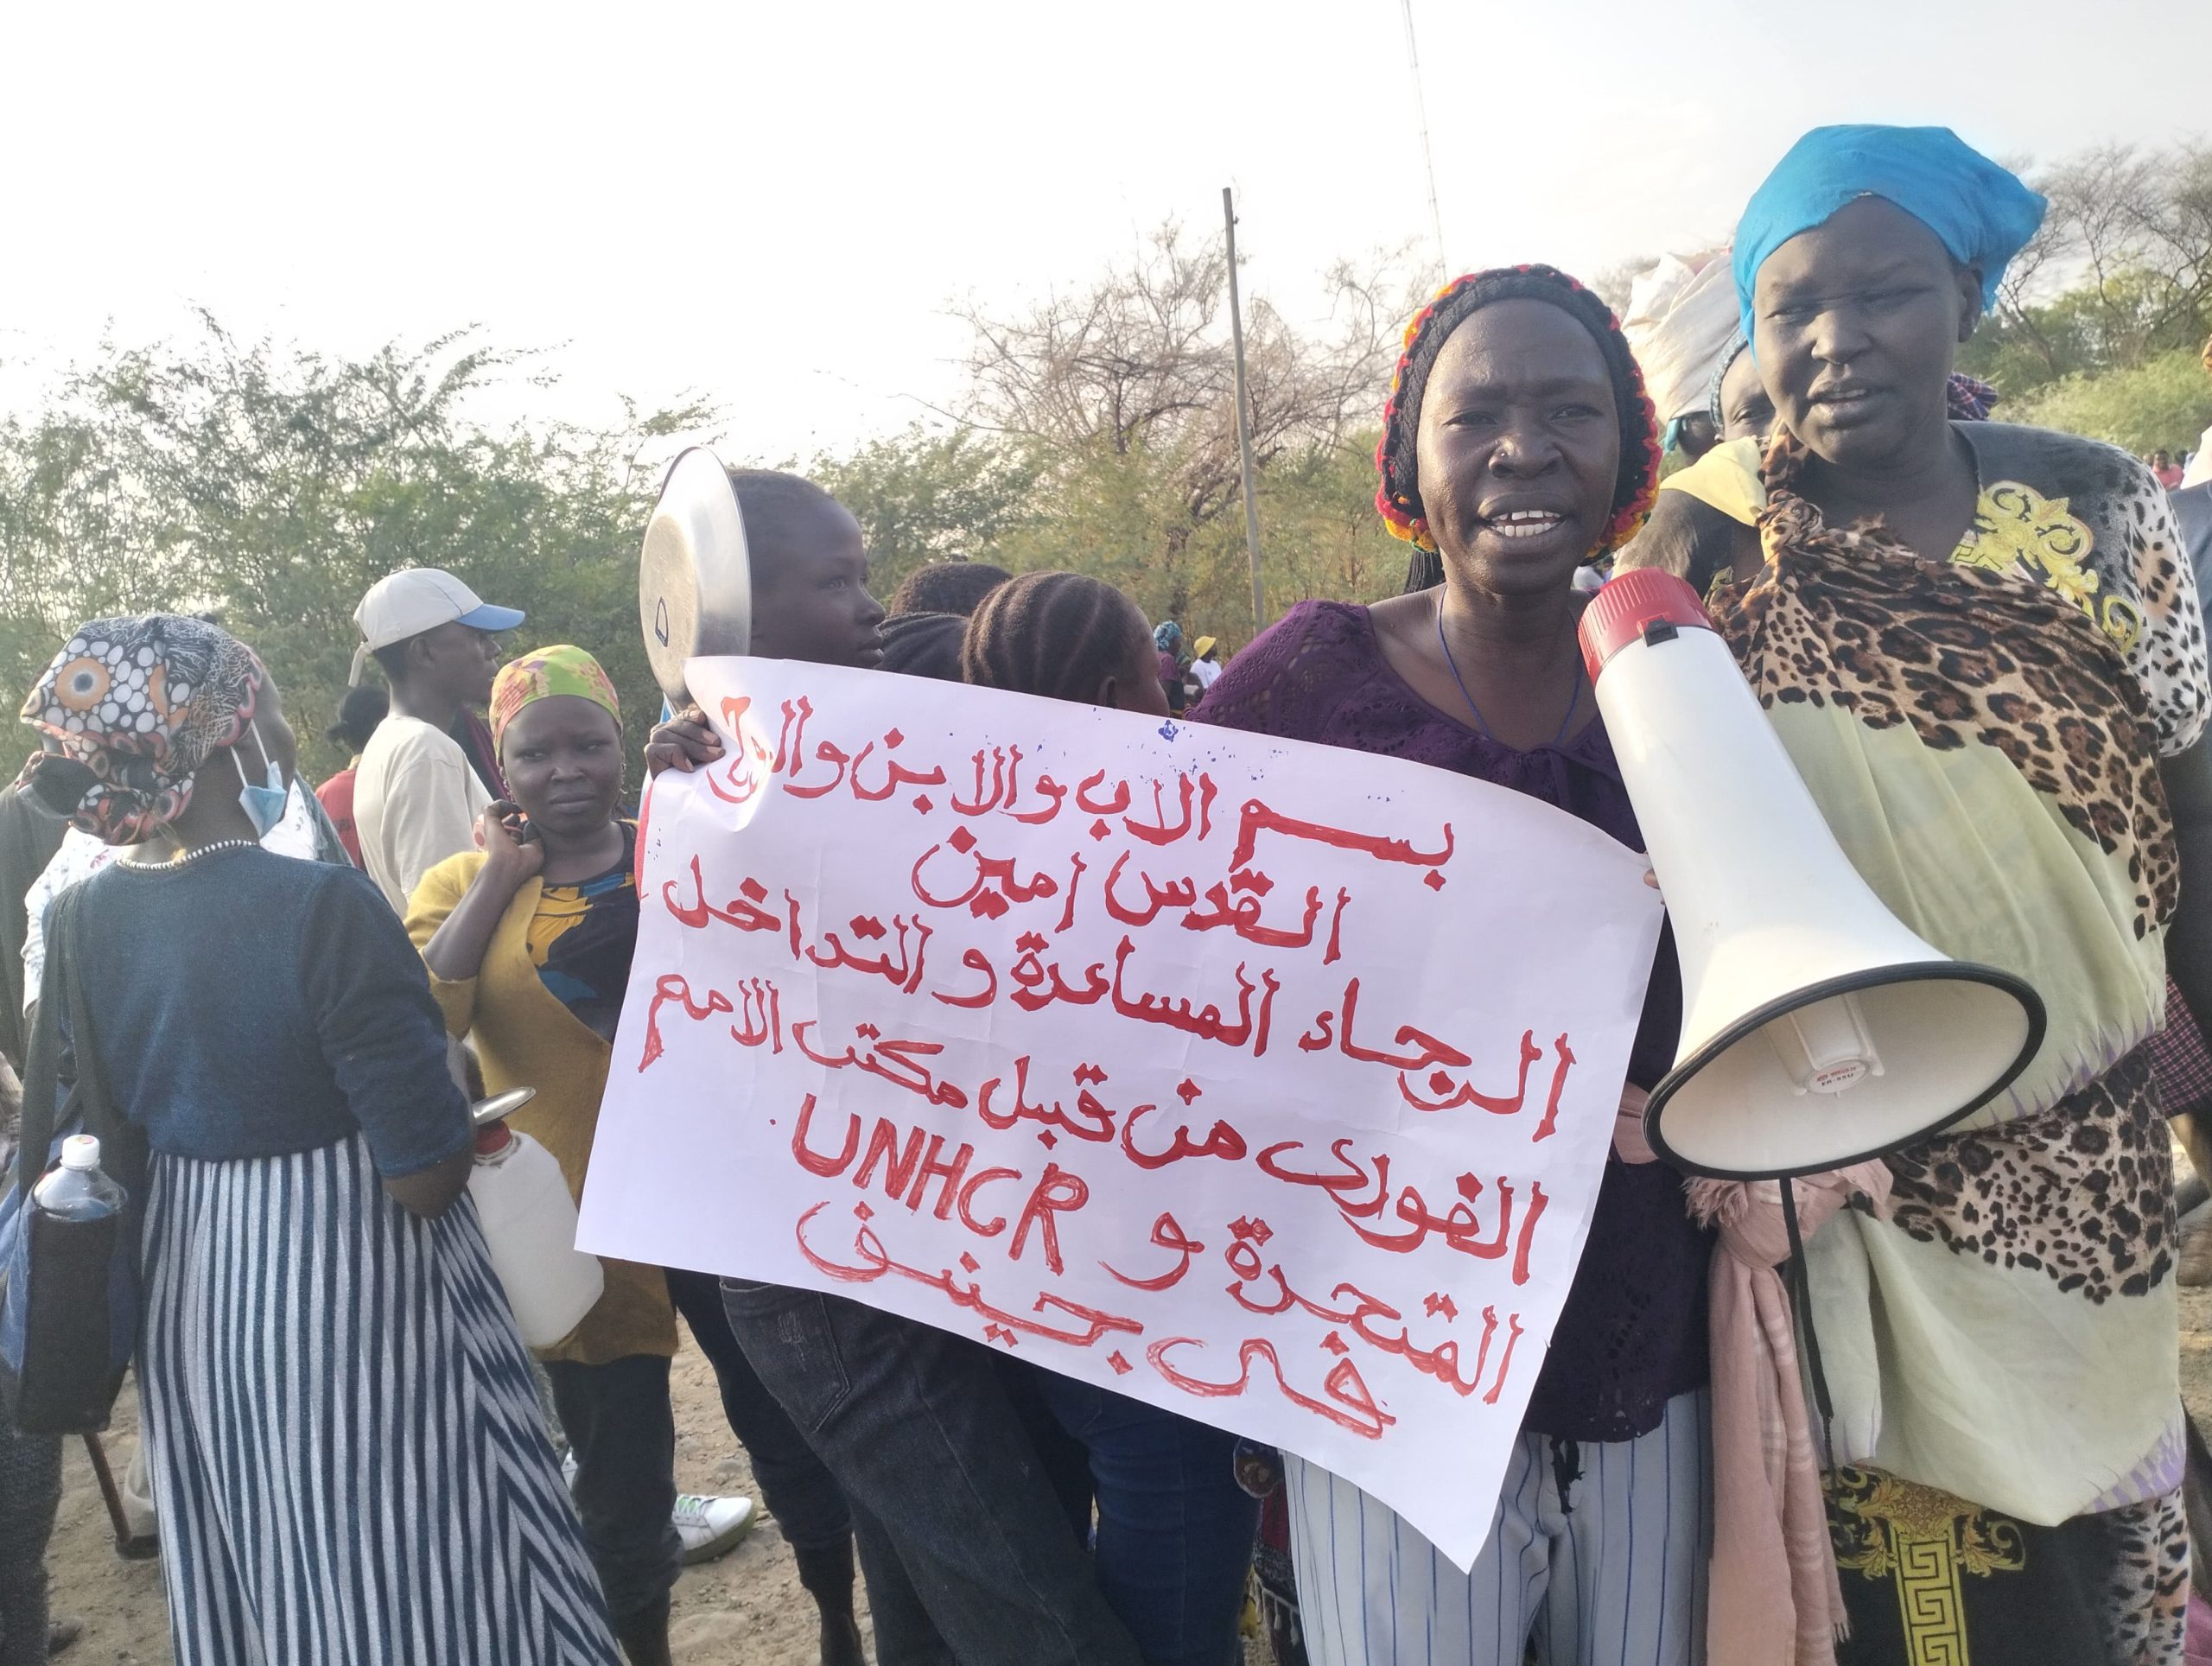 بسم الاب والابن والر
القدس امين
الرجاء المساعدة و التداخل
الفورى من قبل مكتب الامم
المتحدة و UNHCR
فى جينيف